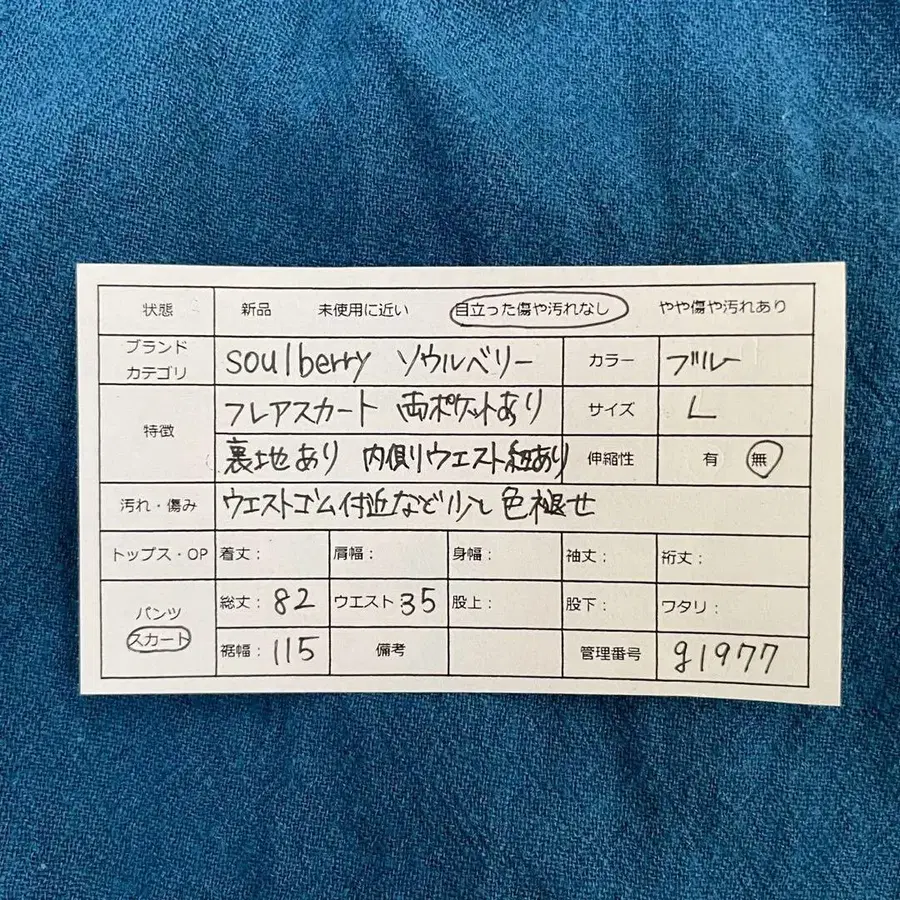 状態 新品 未使用に近い 目立った傷や汚れなし やや傷や汚れあり
ブランド
カテゴリ soulberry ソウルベリー カラー ブルー
特徴 フレアスカート 両ポケットあり サイズ L
裏地あり 内側ウエスト紐あり 伸縮性 有 無
汚れ・傷み ウエストゴム付近など少し色褪せ
トップス・OP 着丈: 肩幅: 身幅: 袖丈: 裄丈:
パンツ 総丈: 82 ウエスト 35 股上: 股下: ワタリ:
スカート 裾幅: 115 備考 管理番号 g1977